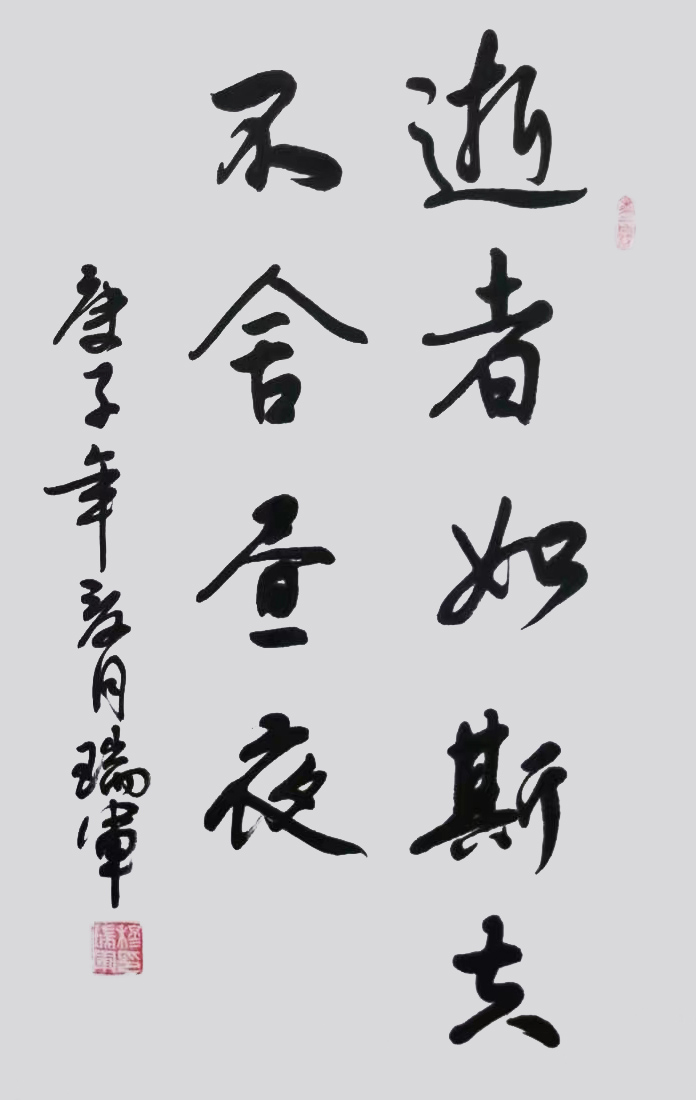 逝者如斯夫
不舍昼夜
庚子年月瑞軍